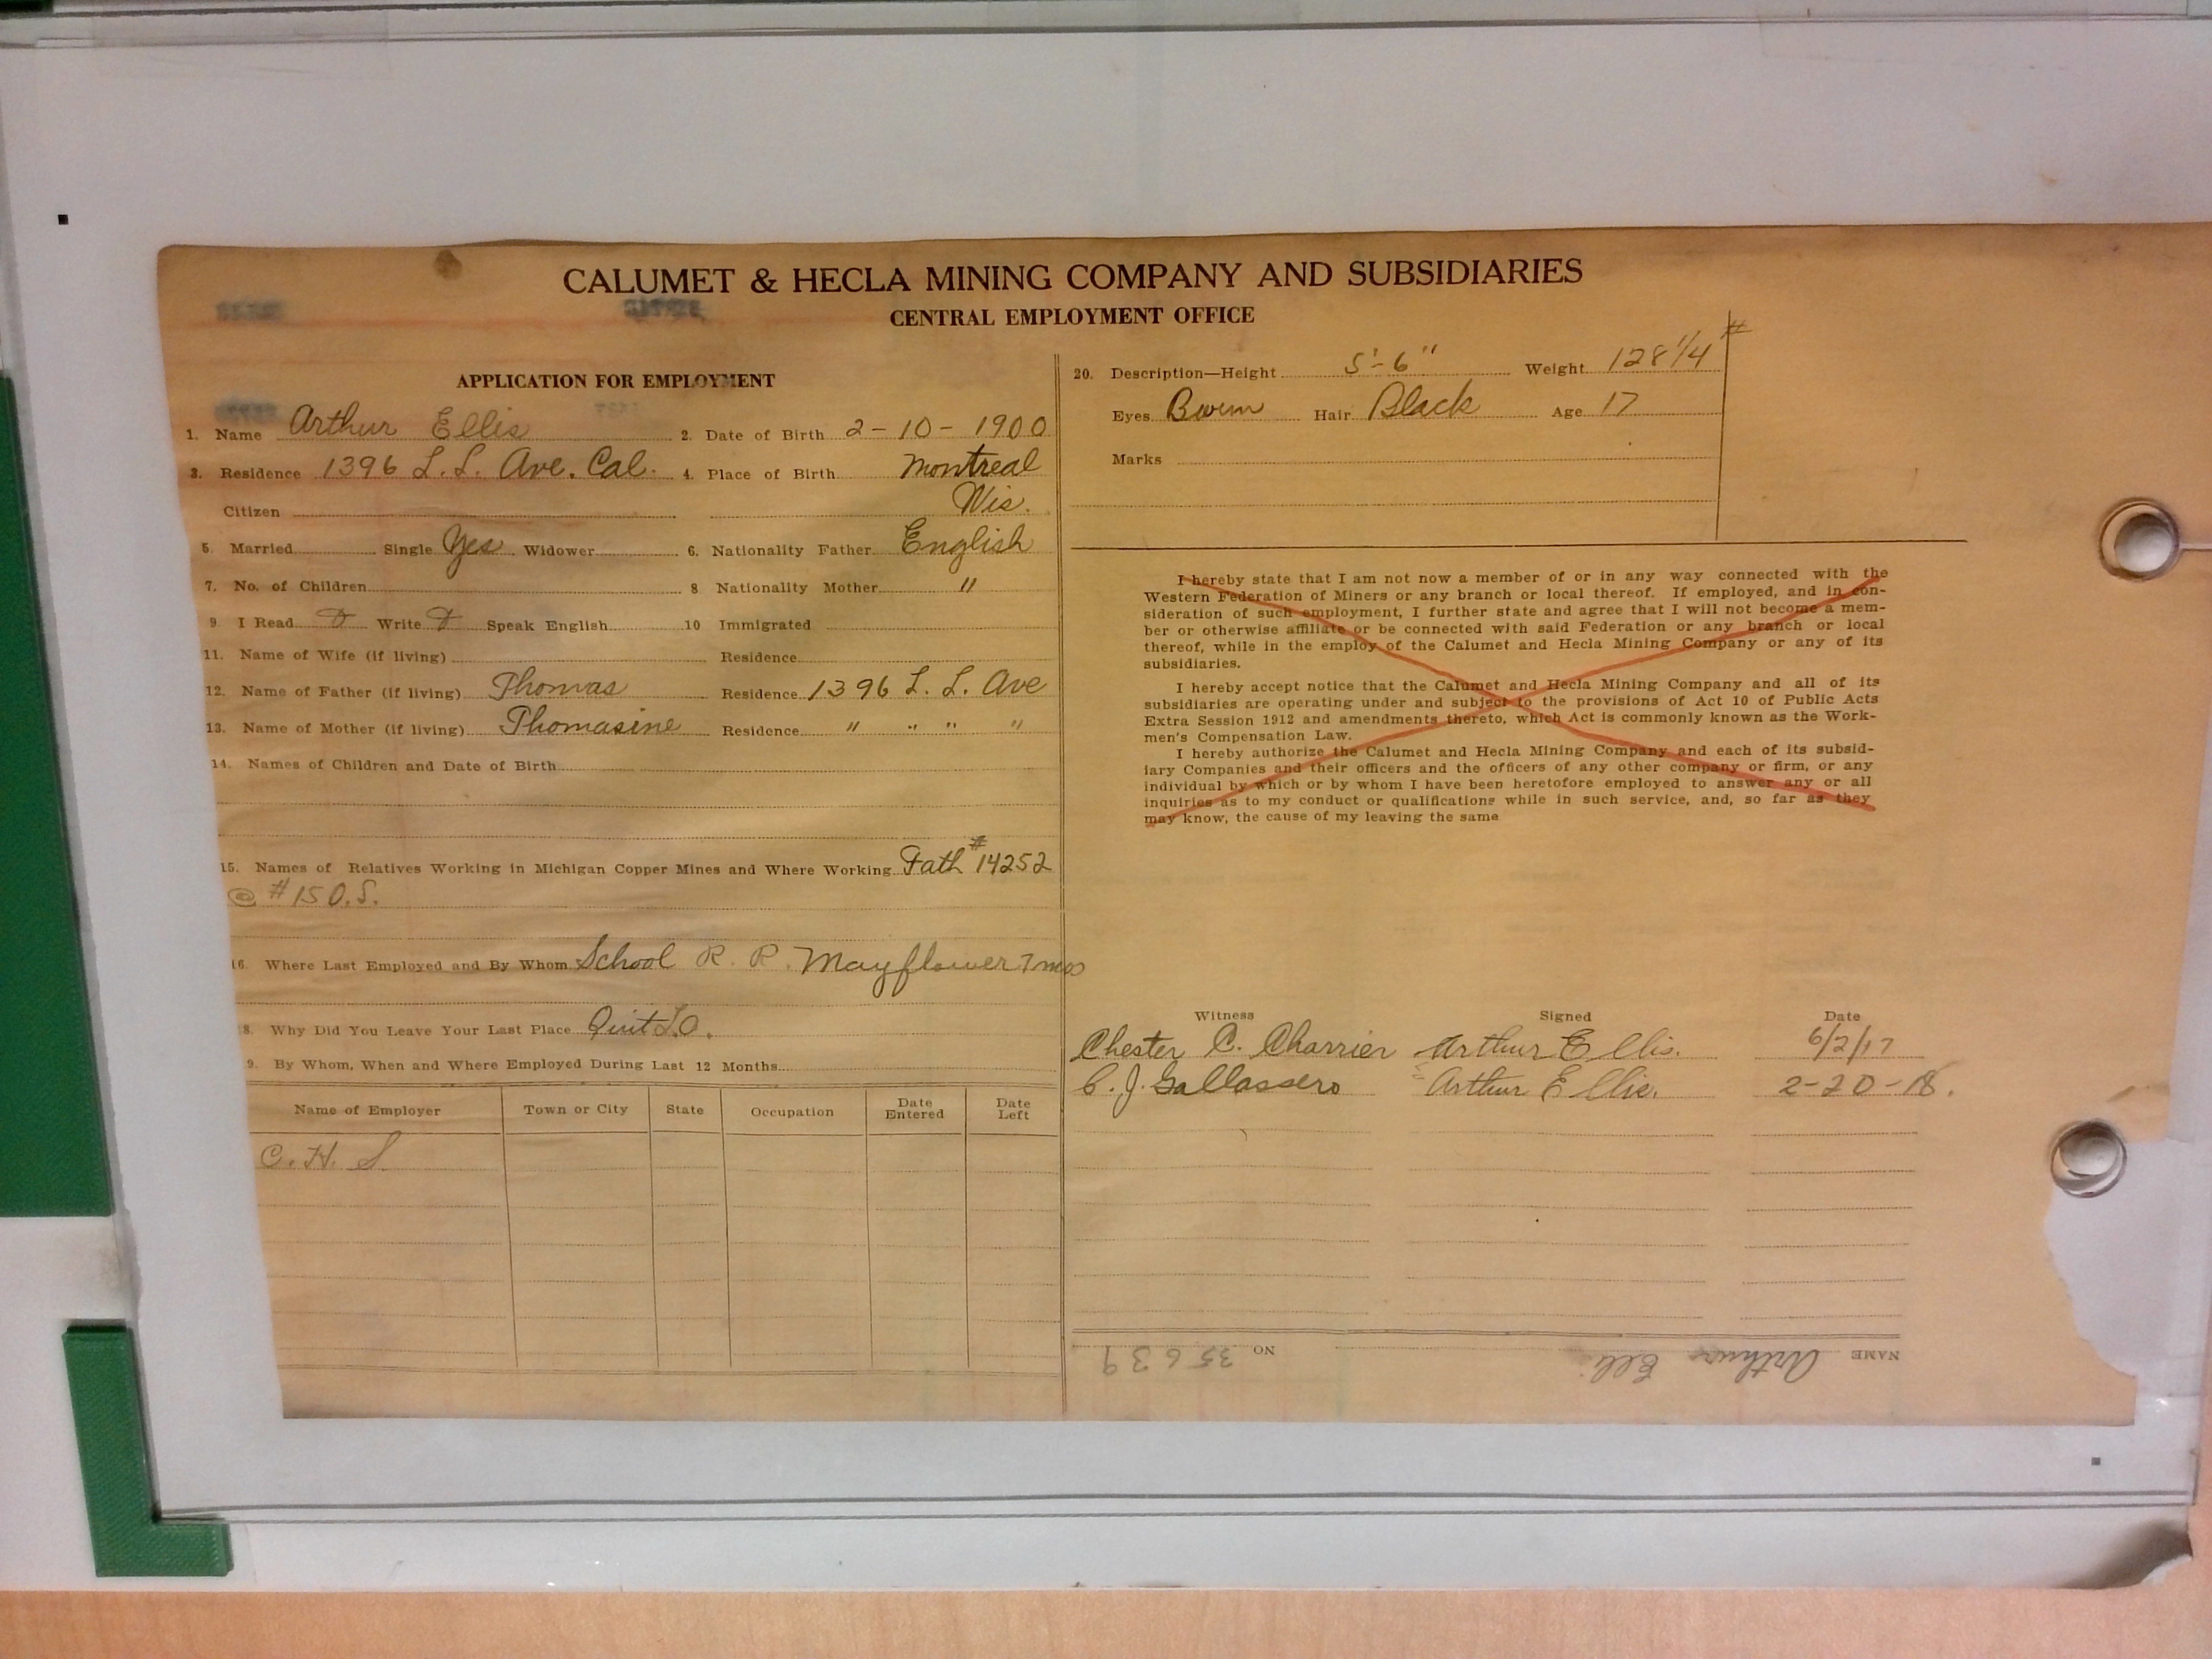 CALUMET & HECLA MINING COMPANY AND SUBSIDIARIES
CENTRAL EMPLOYMENT OFFICE
APPLICATION FOR EMPLOYMENT
1. Name Arthur Ellis 2. Date of Birth 2-10-1900
3. Residence 1396 L.L. Ave. Cal. 4. Place of Birth Montreal
Citizen Wis.
5. Married Single Yes Widower 6. Nationality Father English
7. No. of Children 8 Nationality Mother "
9. I Read Write Speak English 10 Immigrated
11. Name of Wife (if living) Residence
12. Name of Father (if living) Thomas Residence 1396 L. L. Ave
13. Name of Mother (if living) Thomasine Residence " " " "
14. Names of Children and Date of Birth
15. Names of Relatives Working in Michigan Copper Mines and Where Working Fath #14252
@ #15 O.S.
16. Where Last Employed and By Whom School R. R. Mayflower 7 mos
8. Why Did You Leave Your Last Place Quit
9. By Whom, When and Where Employed During Last 12 Months
Name of Employer Town or City State Occupation Date Entered Date Left
C. H. S.
20. Description—Height 5'-6" Weight 128 1/4 #
Eyes Hair Black Age 17
Marks
I hereby state that I am not now a member of or in any way connected with the
Western Federation of Miners or any branch or local thereof. If employed, and in con-
sideration of such employment, I further state and agree that I will not become a mem-
ber or otherwise affiliate or be connected with said Federation or any branch or local
thereof, while in the employ of the Calumet and Hecla Mining Company or any of its
subsidiaries.
I hereby accept notice that the Calumet and Hecla Mining Company and all of its
subsidiaries are operating under and subject to the provisions of Act 10 of Public Acts
Extra Session 1912 and amendments thereto, which Act is commonly known as the Work-
men's Compensation Law.
I hereby authorize the Calumet and Hecla Mining Company and each of its subsid-
iary Companies and their officers and the officers of any other company or firm, or any
individual by which or by whom I have been heretofore employed to answer any or all
inquiries as to my conduct or qualifications while in such service, and, so far as they
may know, the cause of my leaving the same
Witness Signed Date
Chester C. Charrier Arthur Ellis. 6/2/17
C. J. Gallassero Arthur Ellis. 2-20-18.
NAME Arthur Elli NO 35639